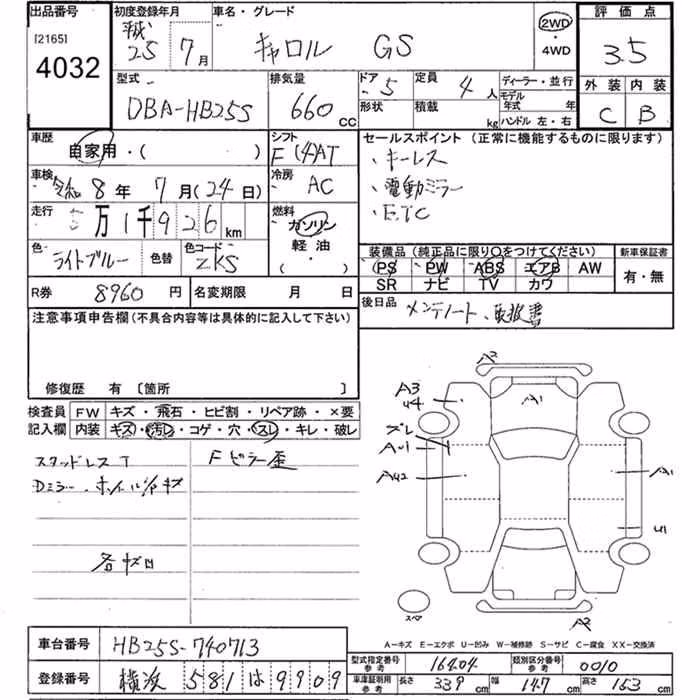 出品番号 初度登録年月 車名・グレード 評価点
[2165] 平成 25年 7月 キャロル GS 2WD・4WD 3.5
4032
型式 排気量 ドア 定員 ディーラー・並行 外装 内装
DBA-HB25S 660cc 5 4人 モデル年式 年 C B
形状 積載 kg ハンドル 左・右
車歴 自家用・( ) シフト F(4)AT セールスポイント(正常に機能するものに限ります)
車検 令和 8年 7月(24日) 冷房 AC ・キーレス
・電動ミラー
走行 万1千926km 燃料 ガソリン 軽油 ( ・ ) ・ETC
色 ライトブルー 色替 色コード ZKS 装備品(純正品に限り〇をつけてください) 新車保証書
PS PW ABS エアB AW 有・無
SR ナビ TV カワ
R券 8960円 名変期限 月 日 後日品 メンテノート、取扱書
注意事項申告欄(不具合内容等は具体的に記入して下さい)
修復歴 有〔箇所 〕
検査員 FW キズ・飛石・ヒビ割・リペア跡・×要
記入欄 内装 キズ・汚レ・コゲ・穴・スレ・キレ・破レ
スタッドレスT Fピラー歪
Dミラー、ホイル冶キズ
各キズ凹
A2
A3 A1
U4
ズレ
AU1
AU2 A1
U1
スペア
A2
A-キズ E-エクボ U-凹み W-補修跡 S-サビ C-腐食 XX-交換済
車台番号 HB25S-740713
登録番号 横浜 581 は 9909
型式指定番号 参考 16404 類別区分番号 参考 0010
車庫証明用 参考 長さ 339cm 幅 147cm 高さ 153cm